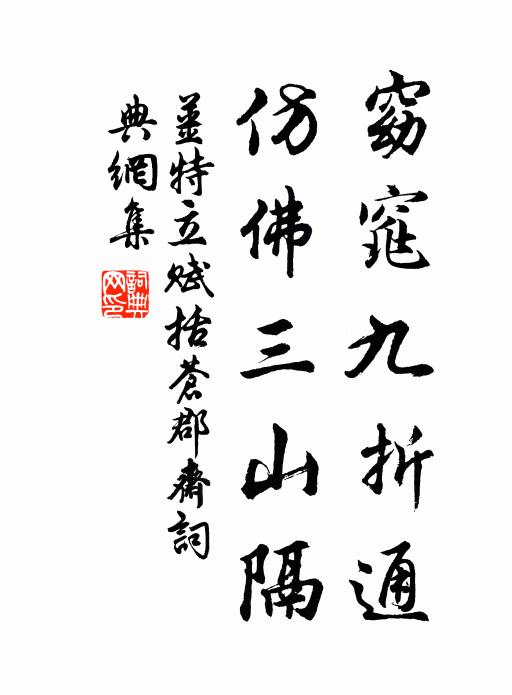 窈窕九折通
仿佛三山隔
姜特立賦括蒼郡齋詞
典網集
詞典網印